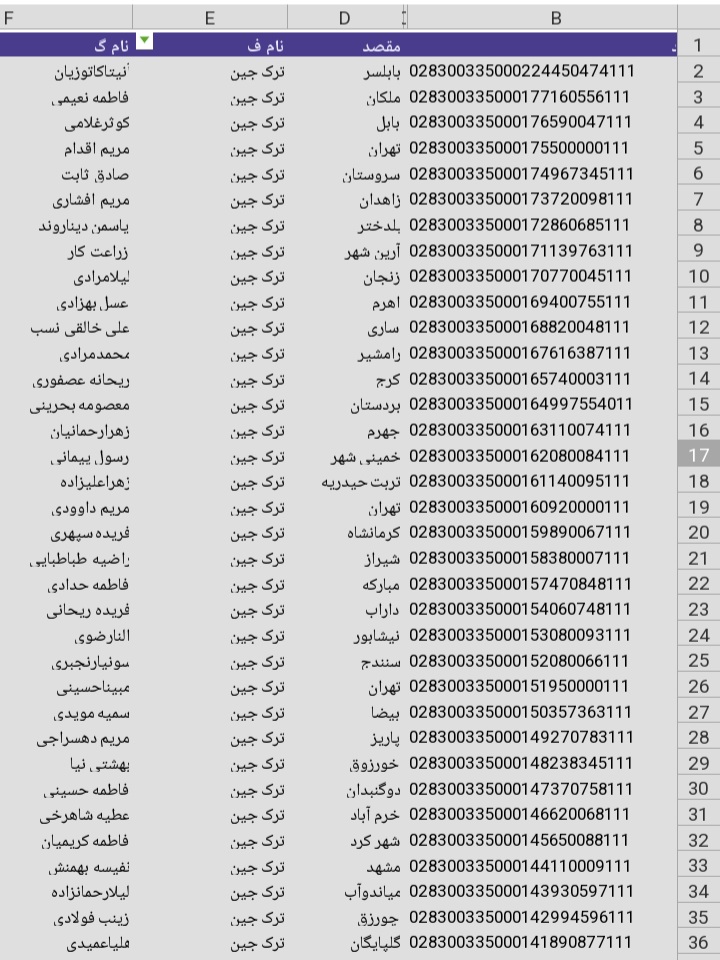 F E D B
نام گ نام ف مقصد 1
آنیتاکاتوزیان ترک جین بابلسر 028300335000224450474111 2
فاطمه نعیمی ترک جین ملکان 028300335000177160556111 3
کوثرغلامی ترک جین بابل 028300335000176590047111 4
مریم اقدام ترک جین تهران 028300335000175500000111 5
صادق ثابت ترک جین سروستان 028300335000174967345111 6
مریم افشاری ترک جین زاهدان 028300335000173720098111 7
یاسمن دیناروند ترک جین پلدختر 028300335000172860685111 8
زراعت کار ترک جین آرین شهر 028300335000171139763111 9
لیلامرادی ترک جین زنجان 028300335000170770045111 10
عسل بهزادی ترک جین اهرم 028300335000169400755111 11
علی خالقی نسب ترک جین ساری 028300335000168820048111 12
محمدمرادی ترک جین رامشیر 028300335000167616387111 13
ریحانه عصفوری ترک جین کرج 028300335000165740003111 14
معصومه بحرینی ترک جین بردستان 028300335000164997554011 15
زهرارحمانیان ترک جین جهرم 028300335000163110074111 16
رسول پیمانی ترک جین خمینی شهر 028300335000162080084111 17
زهراعلیزاده ترک جین تربت حیدریه 028300335000161140095111 18
مریم داوودی ترک جین تهران 028300335000160920000111 19
فریده سپهری ترک جین کرمانشاه 028300335000159890067111 20
راضیه طباطبایی ترک جین شیراز 028300335000158380007111 21
فاطمه حدادی ترک جین مبارکه 028300335000157470848111 22
فریده ریحانی ترک جین داراب 028300335000154060748111 23
النارضوی ترک جین نیشابور 028300335000153080093111 24
سونیارنجبری ترک جین سنندج 028300335000152080066111 25
مبیناحسینی ترک جین تهران 028300335000151950000111 26
سمیه مویدی ترک جین بیضا 028300335000150357363111 27
مریم دهسراجی ترک جین پاریز 028300335000149270783111 28
بهشتی نیا ترک جین خورزوق 028300335000148238345111 29
فاطمه حسینی ترک جین دوگنبدان 028300335000147370758111 30
عطیه شاهرخی ترک جین خرم آباد 028300335000146620068111 31
فاطمه کریمیان ترک جین شهر کرد 028300335000145650088111 32
نفیسه بهمنش ترک جین مشهد 028300335000144110009111 33
لیلارحمانزاده ترک جین میاندوآب 028300335000143930597111 34
زینب فولادی ترک جین چورزق 028300335000142994596111 35
هلیاعمیدی ترک جین گلپایگان 028300335000141890877111 36